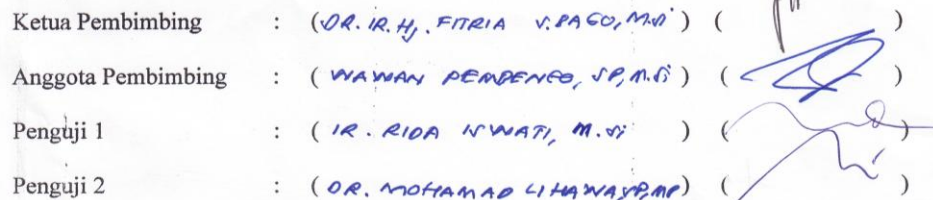 Ketua Pembimbing : (DR. IR. Hj. FITRIA S. BAGU, M.Si) ( )
Anggota Pembimbing : ( WAWAN PEMBENGO, SP, M.Si ) ( )
Penguji 1 : ( IR. RIDA ISWATI, M.Si ) ( )
Penguji 2 : ( DR. MOHAMAD LIHAWA, SP, MP) ( )